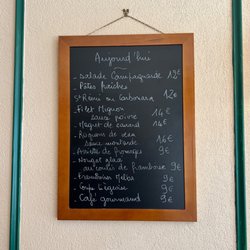 Aujourd'hui
- Salade Campagnarde 12€
- Pâtes fraîches
St Rémi ou Carbonara 12€
- Filet Mignon
sauce poivre 14€
- Magret de canard 14€
- Rognons de veau
sauce moutarde 16€
- Assiette de fromages 9€
- Nougat glacé
au coulis de framboise 9€
- Framboisier Melba 9€
- Coupe 9€
- Café gourmand 9€